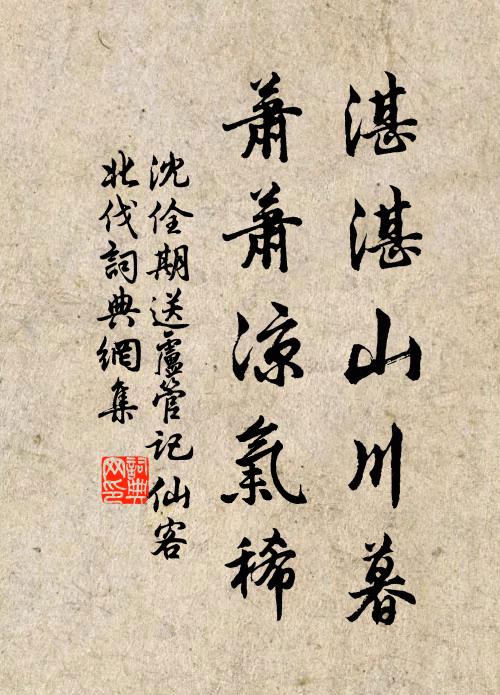 湛湛山川暮
蕭蕭涼氣稀
沈佺期送盧管記仙客
北伐詞典網集
詞典
网印